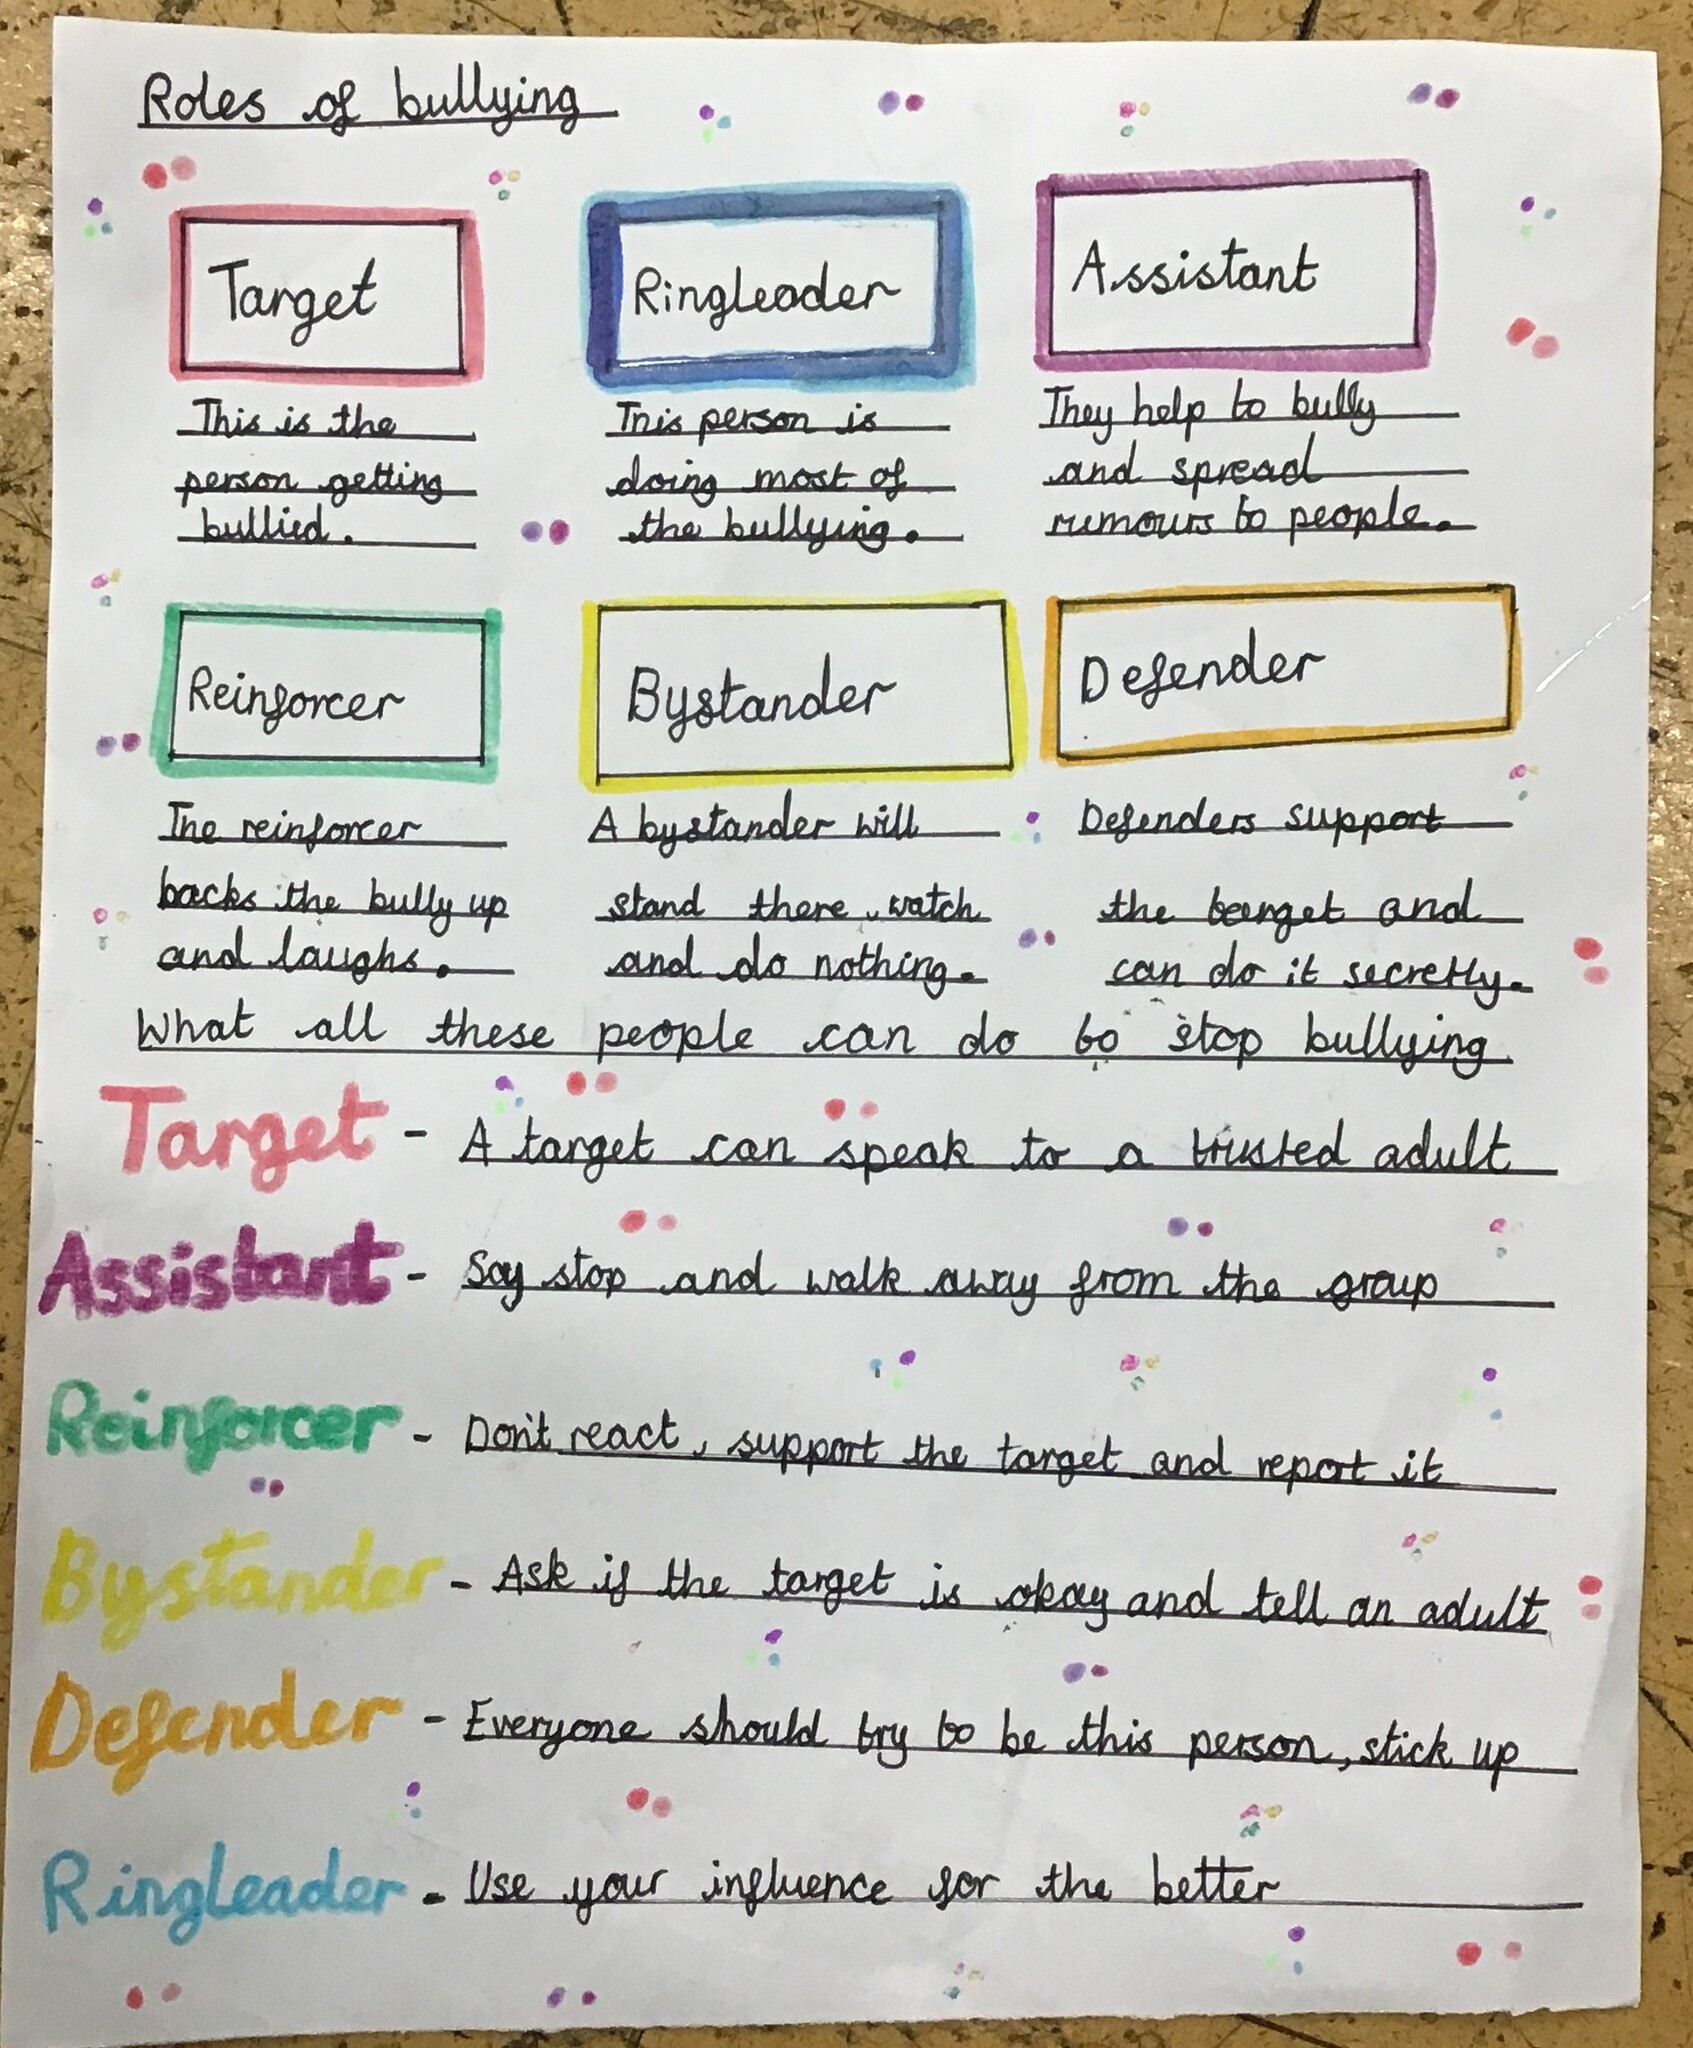 Roles of bullying
Target
This is the
person getting
bullied.
Ringleader
This person is
doing most of
the bullying.
Assistant
They help to bully
and spread
rumours to people.
Reinforcer
The reinforcer
backs the bully up
and laughs.
Bystander
A bystander will
stand there, watch
and do nothing.
Defender
Defenders support
the target and
can do it secretly.
What all these people can do to stop bullying
Target - A target can speak to a trusted adult
Assistant - Say stop and walk away from the group
Reinforcer - Don't react, support the target and report it
Bystander - Ask if the target is okay and tell an adult
Defender - Everyone should try to be this person, stick up
Ringleader - Use your influence for the better